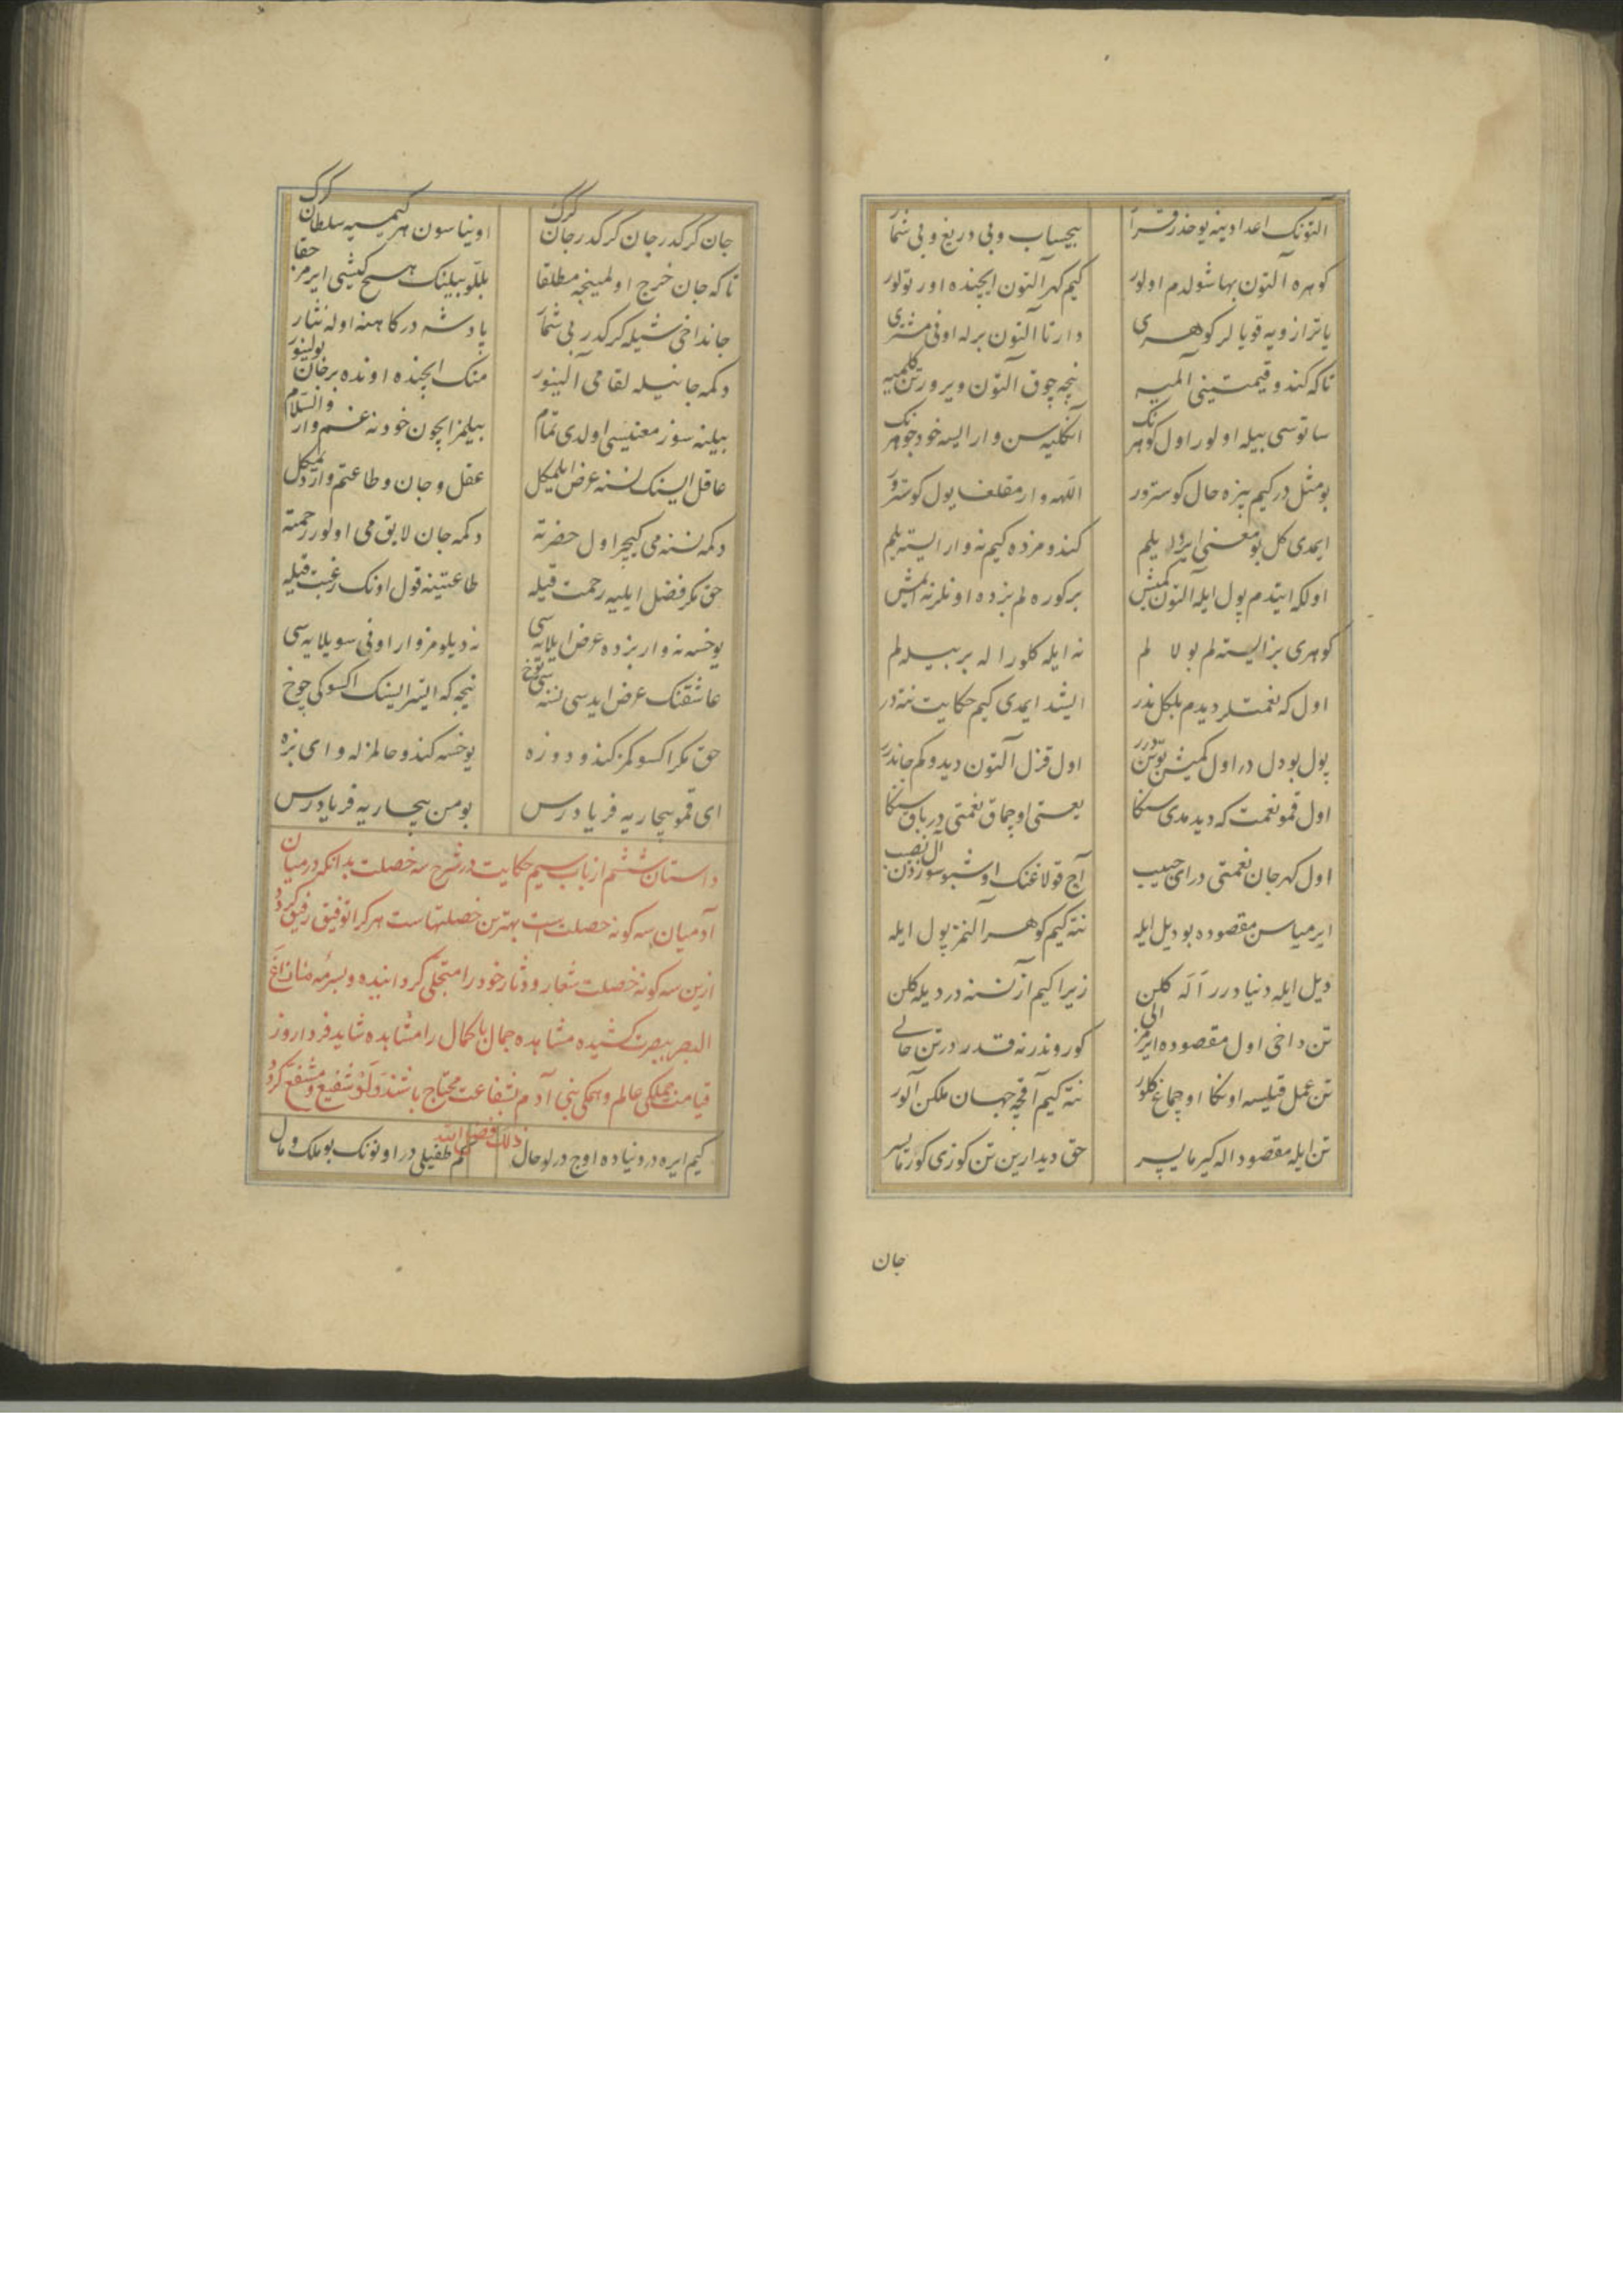 التونك اعدادينه یوخدر قرار بیحساب و بی دریغ و بی شمار
کوهره آلتون بها شولدم اولور کیم کهر آلتون ایچنده اورتولور
یا ترازویه قویالر کوهری دارتا آلتون برله اونی مشتری
تاکه کندو قیمتینی آلمیه نیجه چوق آلتون ویرورسن کلمیه
ساتوسی بیله اولور اول کوهرنک آنکلیه سن وار ایسه خود جوهرنک
بو مثل در کیم بیزه حال کوسترور اللهه وارمقلغا یول کوسترور
ایمدی کل بو معنی ایروله یلم کندومزده کیم نه وار ایسته یلم
اولکه ایتدم پول ایله آلتون کمش بر کوره لم بزده اونلر نه ایمش
کوهری بز ایسته لم بولا لم نه ایله کلور اله بر بیله لم
اول که نعمتلر دیدم بلکل ندر ایشد ایمدی کیم حکایت نته در
پول بو دل در اول کمش بو تن درر اول قزل آلتون دیدوکم جاندرر
اول قمو نعمت که دیدمدی سنکا یعنی اوچماق نعمتی در باق سنکا
اول کهر جان نعمتی در ای حبیب آچ قولاغنک اوشبو سوزدن آل نصیب
ایرمیاسن مقصوده بو دیل ایله نته کیم کوهر آلنمز پول ایله
دیل ایله دنیا درر اله کلن زیرا کیم آز نسنه در دیله کلن
تن داخی اول مقصوده ایرمز الی کوروندر نه قدر در تن حالی
تن عمل قیلیسه اونکا اوچماغ کلور نته کیم آقچه جهان ملکن آلور
تن ایله مقصود اله کیرمایسر حق دیدارین تن کوزی کورمایسر
جان
جان کرکدر جان کرکدر جان کرک اویناسون هر کیمسیه سلطان کرک
تاکه جان خرج اولمینجه مطلقا بللو بیلینک هیچ کیشی ایرمز حقا
جانداخی شیله کرکدر بی شمار پادشه درکاهنه اوله نثار
دکمه جانیله لقا می آلینور منک ایچنده اونده بر جان بولینور
بیلنه سوز معنیسی اولدی تمام بیلمز ایچون خود نه غم وار والسلام
عاقل ایسنک نسنه عرض ایلمیکل عقل و جان و طاعتم وار دیمیکل
دکمه نسنه می کیچر اول حضرته دکمه جان لایق می اولور رحمته
حق مکر فضل ایلیه رحمت قیله طاعتینه قول اونک رغبت قیله
یوخسه نه وار بزده عرض ایلایه سی نه دیلومز وار اونی سویلایه سی
عاشقنک عرض ایده سی نسنه سی یوخ نیجه که ایستر ایسنک اکسوکی چوخ
حق مکر اکسوکمز کندو دوزه یوخسه کندو حالمزله وای بزه
ای قمو بیچاریه فریادرس بو من بیچاریه فریادرس
داستان ششم از باب سیم حکایت در شرح سه خصلت بدانکه در میان
آدمیان سه کونه خصلت است بهترین خصلتهاست هر کرا توفیق رفیق کردد
ازین سه کونه خصلت شعار و دثار خود را متجلی کردانیده و بسرمه مازاغ
البصر بصیرت کشیده مشاهده جمال با کمال را مشاهده شاید فردا روز
قیامت جملکی عالم و همکی بنی آدم بشفاعت محتاج باشند و او شفیع و مشفع کردد
ذلک فضل الله
کیم ایره در دنیاده اوج در لو حال هم طفیلی در اونونک بو ملک و مال